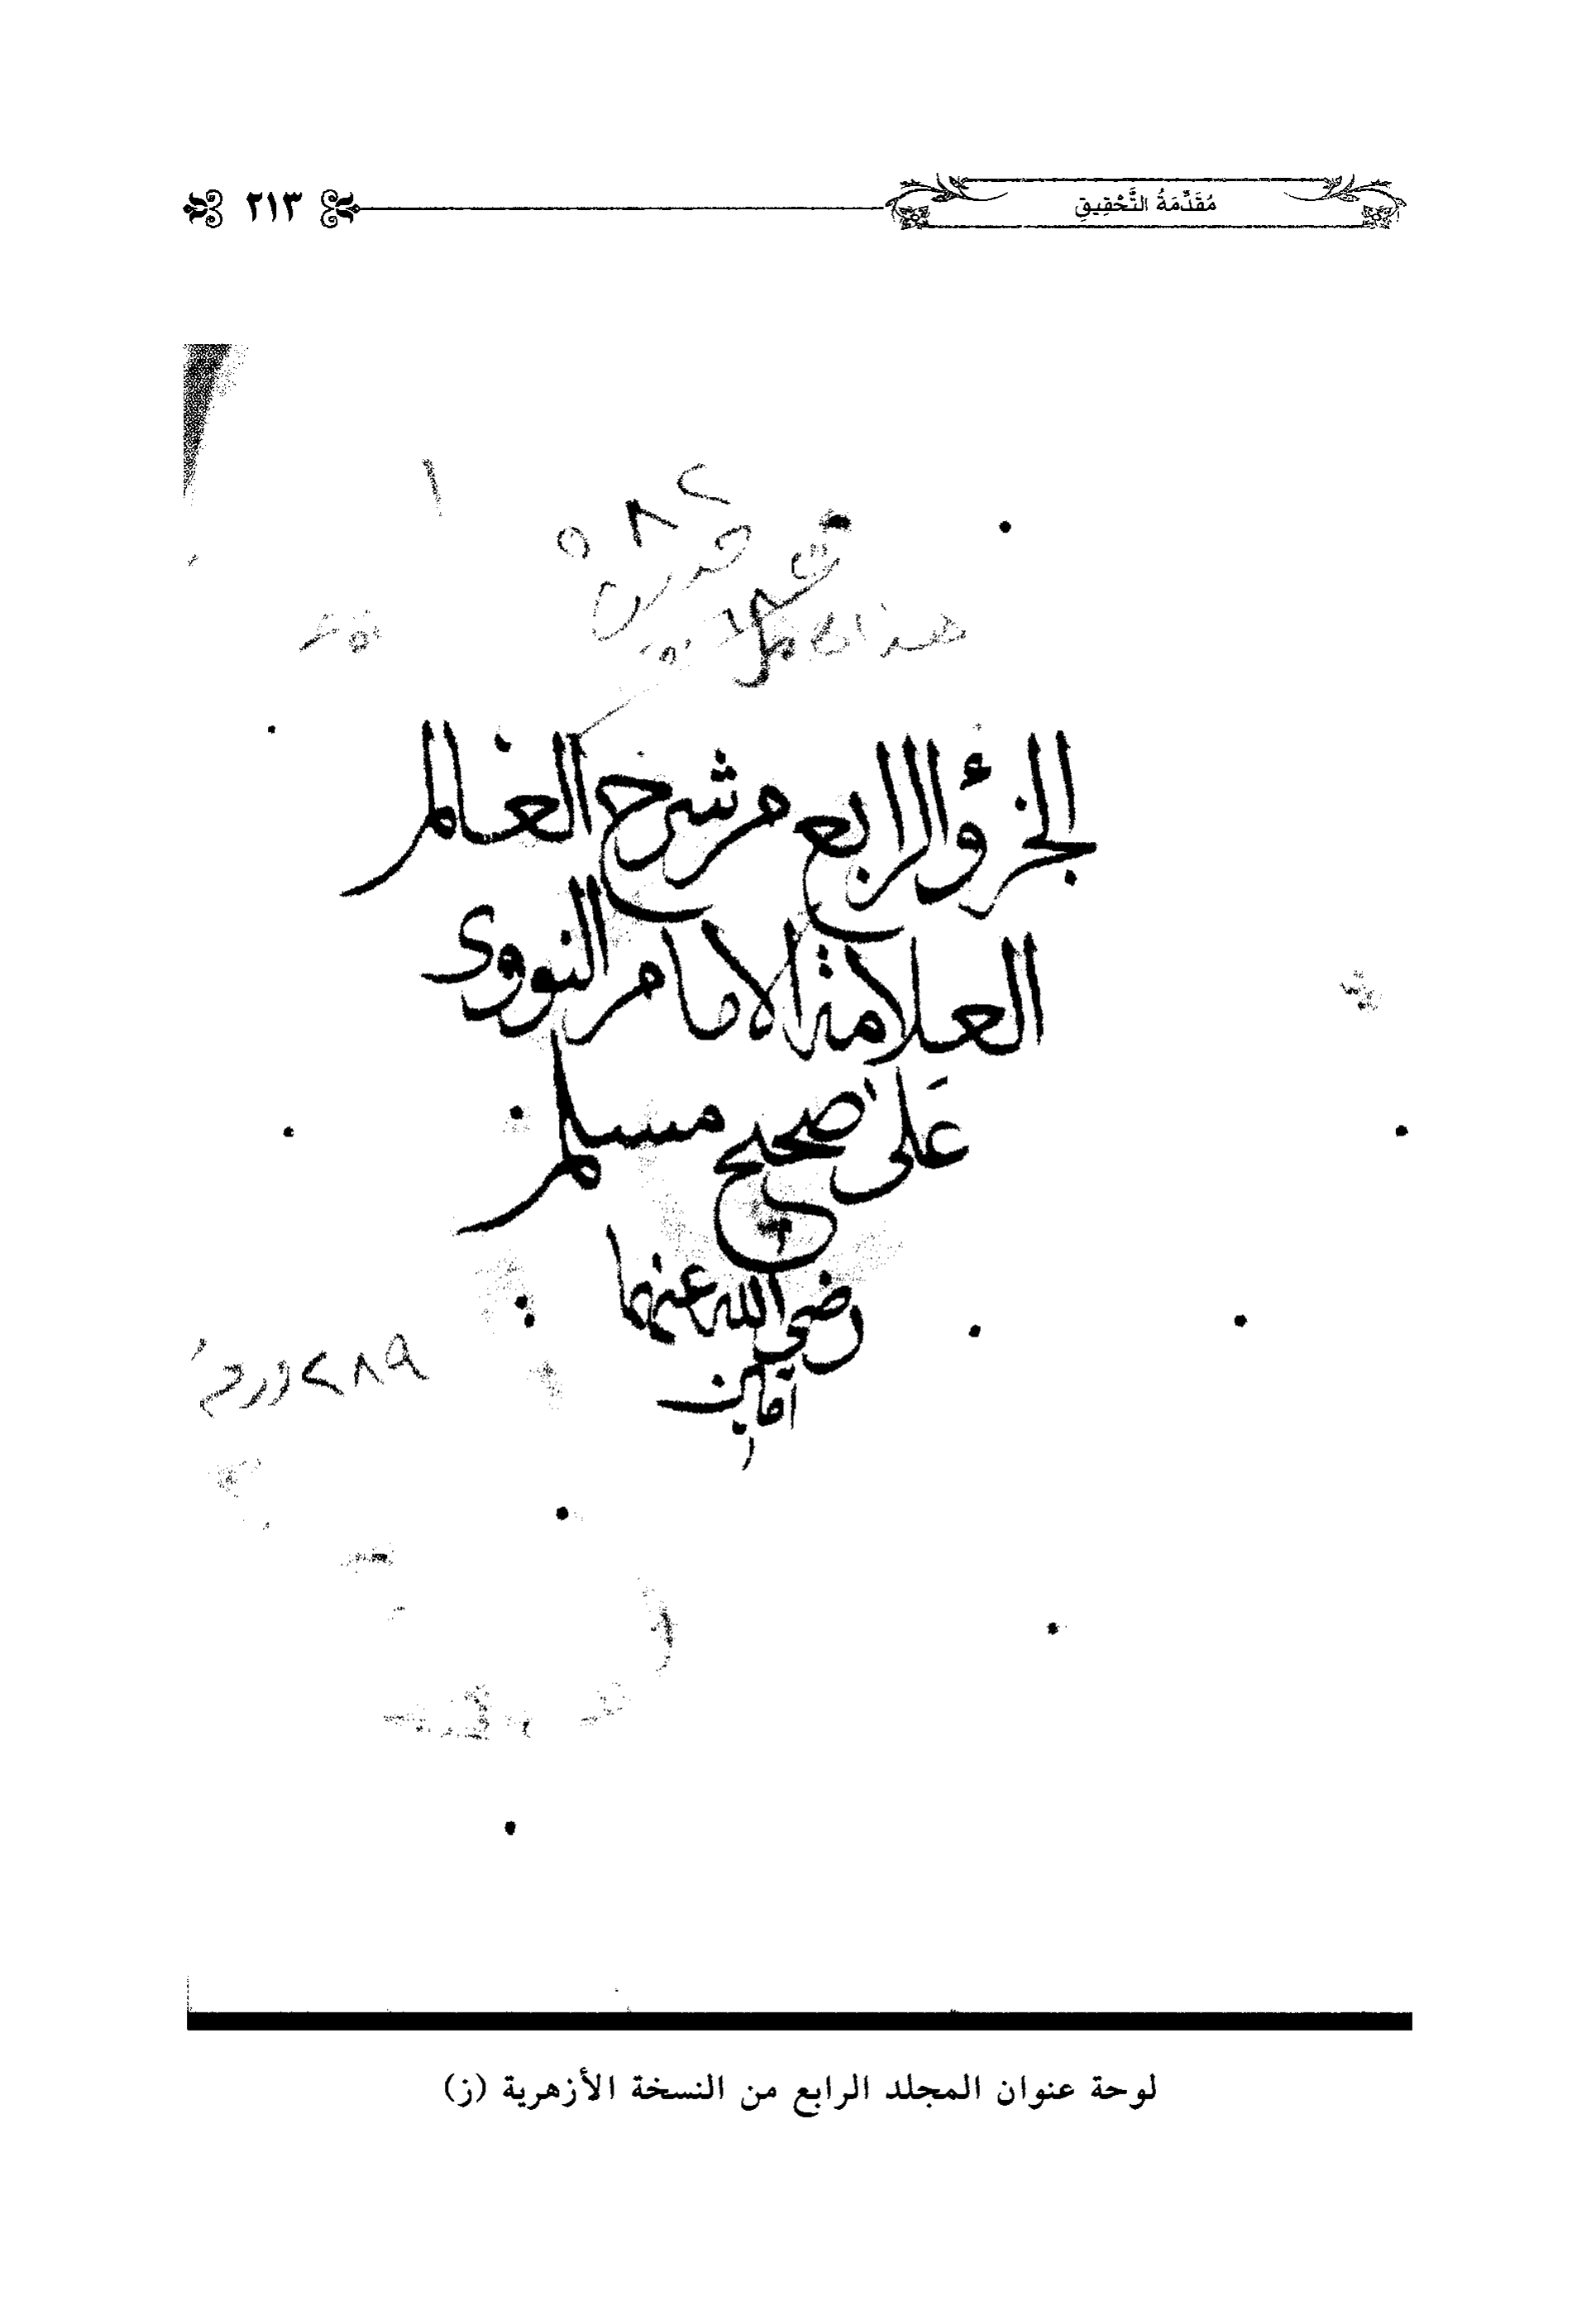 مُقَدِّمَةُ التَّحْقِيقِ ٢١٣
الجزؤ الرابع من شرح العالم
العلامة الامام النووى
على صحيح مسلم
رضى الله عنهما
امين
لوحة عنوان المجلد الرابع من النسخة الأزهرية (ز)